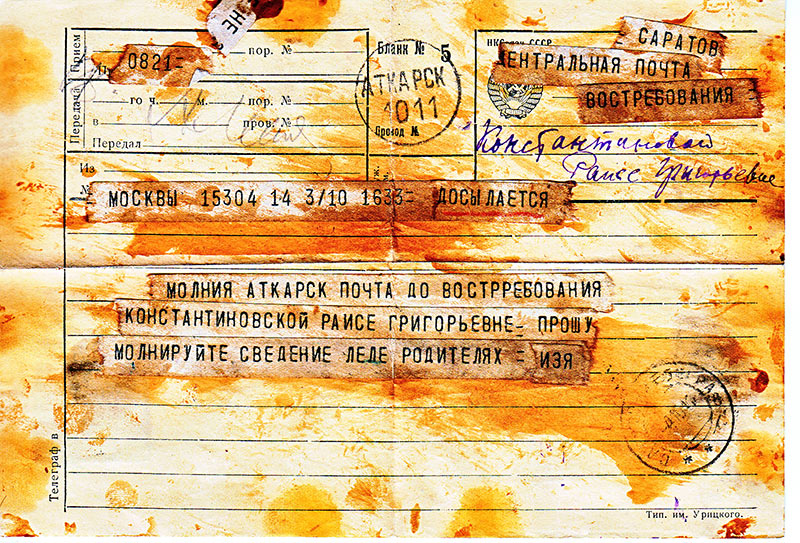 НЕ
Прием
0821-
пор. №
Бланк № 5
АТКАРСК
1011
Провод №
СССР
САРАТОВ
ЦЕНТРАЛЬНАЯ ПОЧТА
ВОСТРЕБОВАНИЯ
Константиновой
Раисе Григорьевне
Передача
го ч. м. пор. №
в пров. №
Передал
Из
№
МОСКВЫ 15304 14 3/10 1633= ДОСЫЛАЕТСЯ
МОЛНИЯ АТКАРСК ПОЧТА ДО ВОСТРРЕБОВАНИЯ
КОНСТАНТИНОВСКОЙ РАИСЕ ГРИГОРЬЕВНЕ- ПРОШУ
МОЛНИРУЙТЕ СВЕДЕНИЕ ЛЕДЕ РОДИТЕЛЯХ = ИЗЯ
Телеграф в
Тип. им. Урицкого.